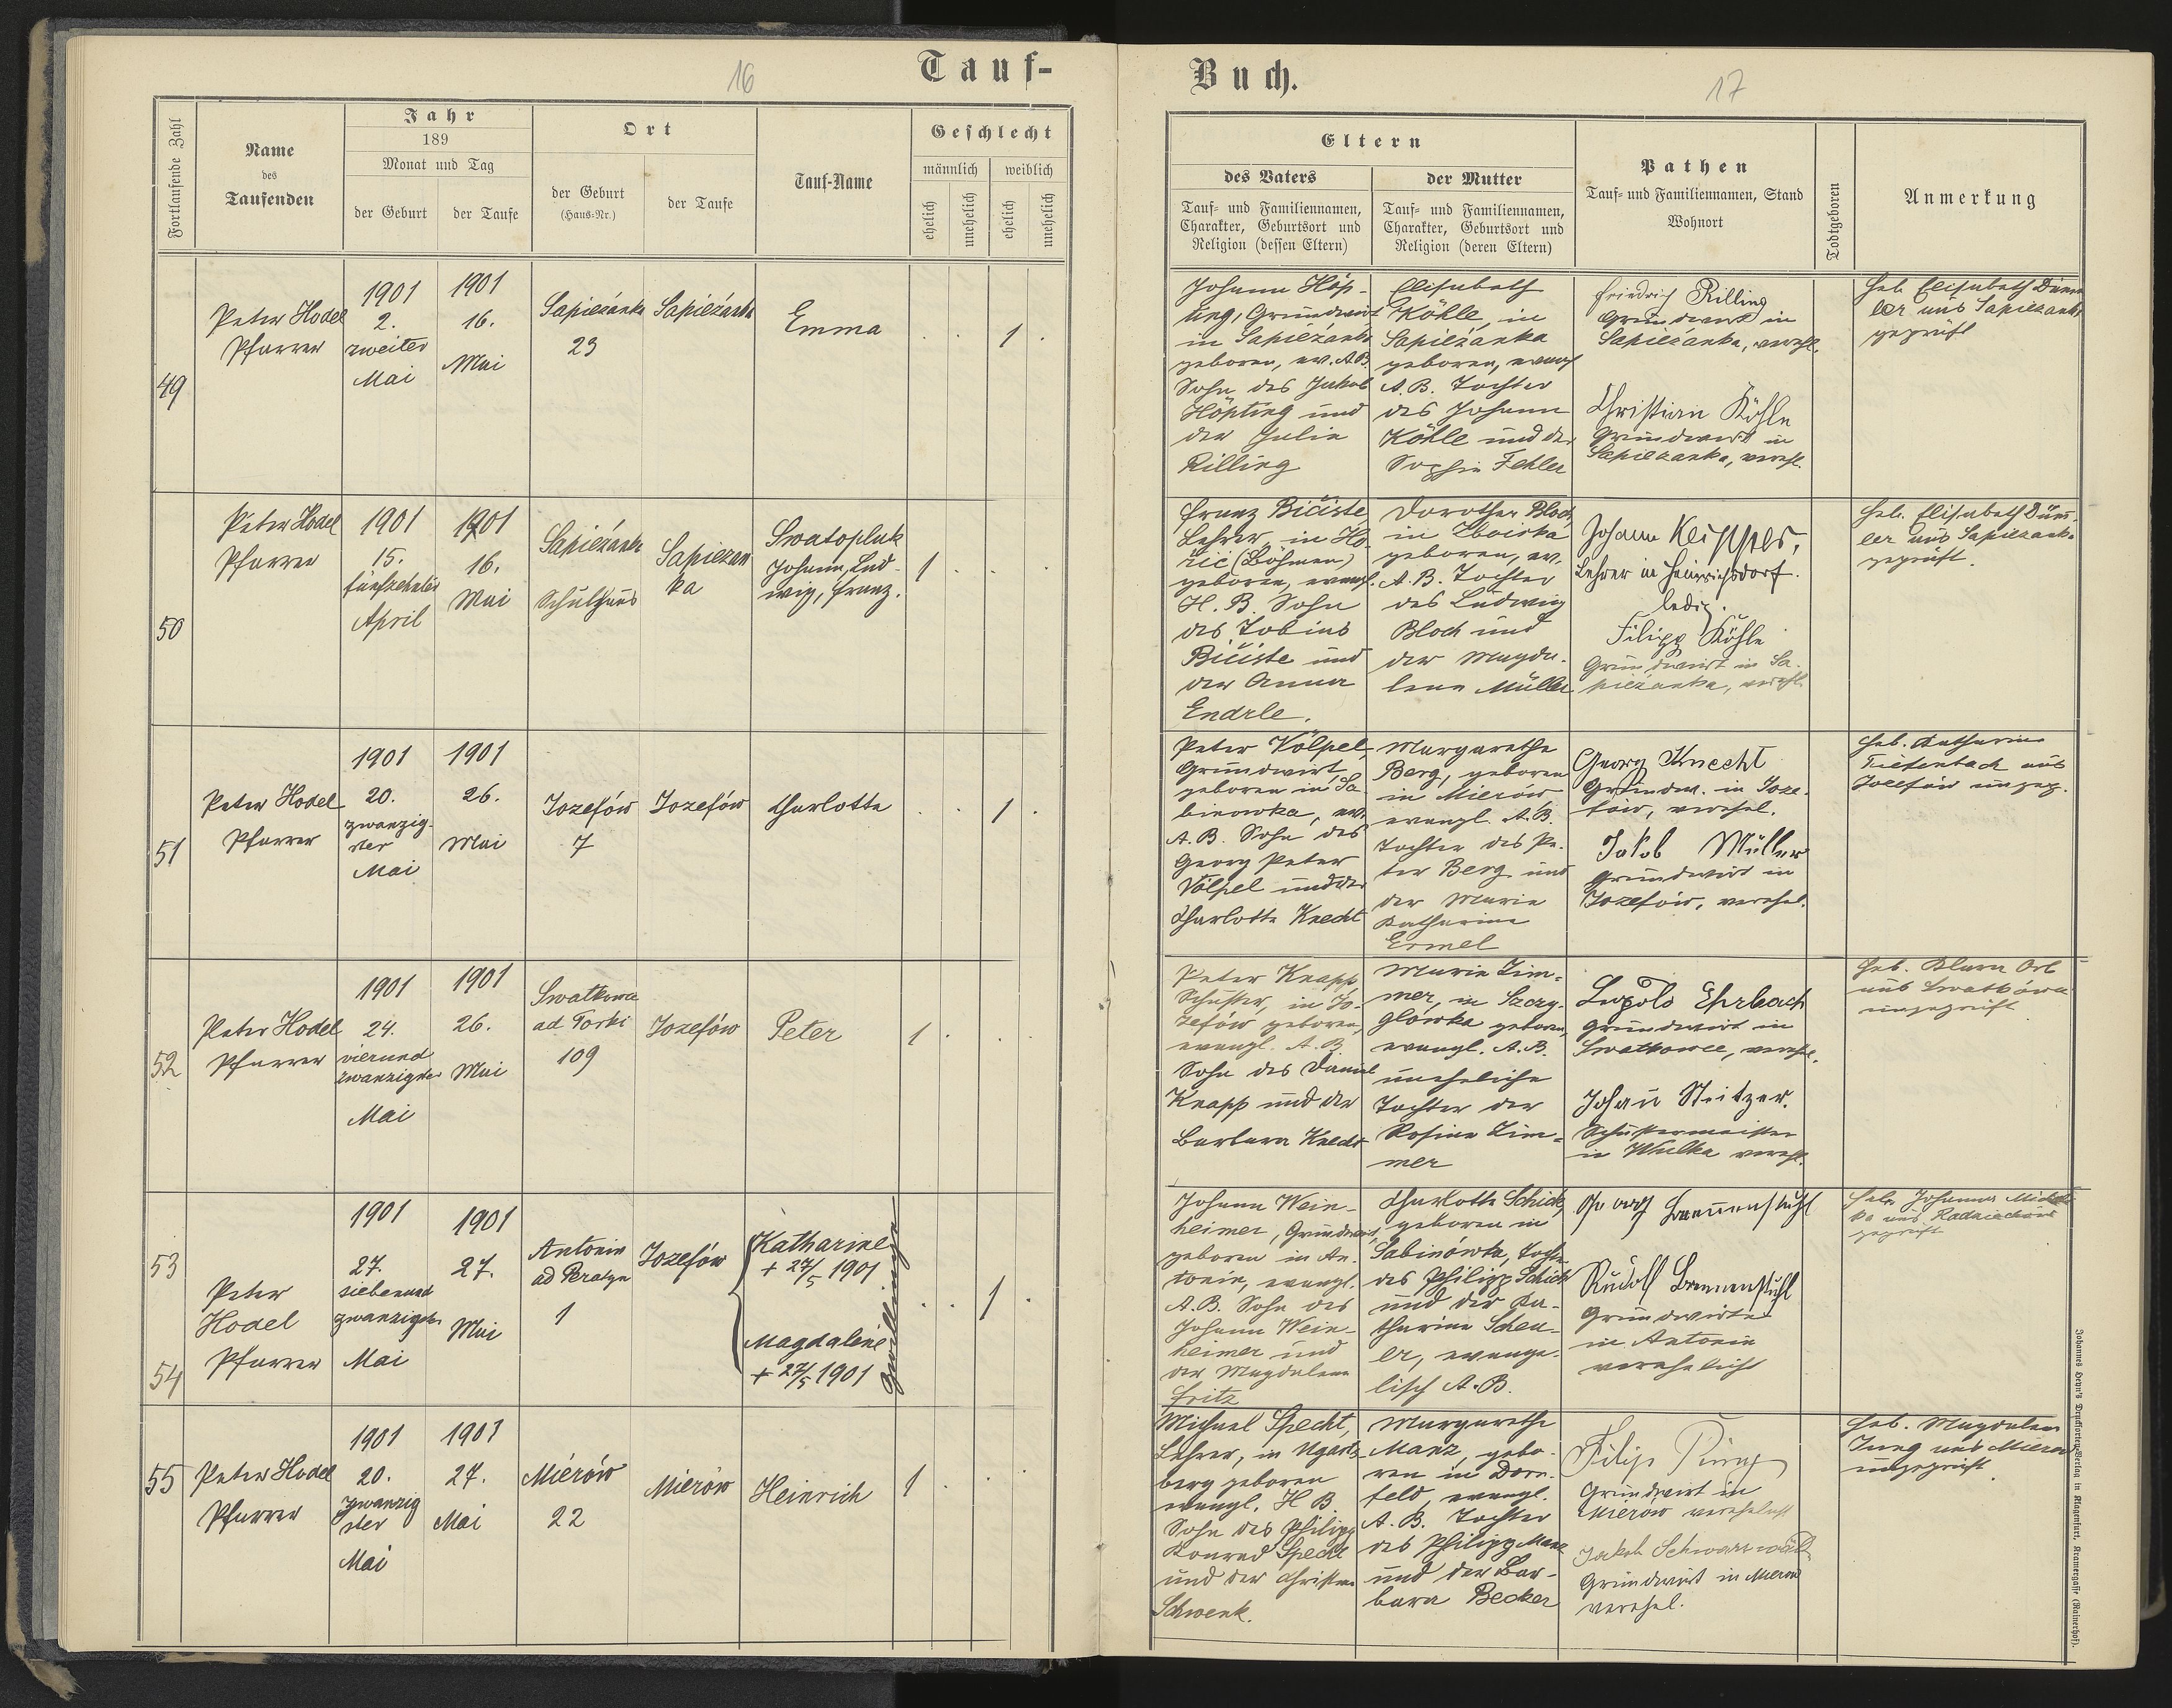 16
Tauf-
Fortlaufende Zahl
Name
des
Taufenden
Jahr
189
Monat und Tag
der Geburt
der Taufe
Ort
der Geburt
(Haus-Nr.)
der Taufe
Tauf-Name
Geschlecht
männlich
weiblich
ehelich
unehelich
ehelich
unehelich
49
Peter Hodel
Pfarrer
1901
2.
zweiter
Mai
1901
16.
Mai
Sapieżanka
23
Sapieżanka
Emma
1
50
Peter Hodel
Pfarrer
1901
15.
fünfzehnter
April
1901
16.
Mai
Sapieżanka
Schulhaus
Sapiezan
ka
Swatopluk
Johann, Lud-
wig, Franz.
1
51
Peter Hodel
Pfarrer
1901
20.
zwanzig-
ster
Mai
1901
26.
Mai
Jozefów
7
Jozefów
Charlotte
1
52
Peter Hodel
Pfarrer
1901
24.
vierund
zwanzigster
Mai
1901
26.
Mai
Swatkowce
ad Torki
109
Jozefów
Peter
1
53
54
Peter
Hodel
Pfarrer
1901
27.
siebenund
zwanzigster
Mai
1901
27.
Mai
Antonin
ad Peratyn
1
Jozefów
Katharine
+ 27/5 1901
Magdalene
+ 27/5 1901
Zwillinge
1
55
Peter Hodel
Pfarrer
1901
20.
zwanzig
ster
Mai
1901
27.
Mai
Mierów
22
Mierów
Heinrich
1
Buch.
17
Eltern
des Vaters
Tauf- und Familiennamen,
Charakter, Geburtsort und
Religion (dessen Eltern)
der Mutter
Tauf- und Familiennamen,
Charakter, Geburtsort und
Religion (deren Eltern)
Pathen
Tauf- und Familiennamen, Stand
Wohnort
Todtgeboren
Anmerkung
Johann Höp-
ting, Grundwirt
in Sapieżanka
geboren, ev. A.B.
Sohn des Jakob
Höpting und
der Julie
Rilling
Elisabeth
Köhle, in
Sapieżanka
geboren, evangl
A.B. Tochter
des Johann
Köhle und der
Sophie Fehler
Friedrich Rilling
Grundwirt in
Sapieżanka, verehl.
Christian Köhle
Grundwirt in
Sapiezanka, verehl.
Heb. Elisabeth Dümm
ler aus Sapiezanka
geprüft
Franz Bičiste
Lehrer, in Ho-
řič (Böhmen)
geboren, evangl.
H.B. Sohn
des Tobias
Bičiste und
der Anna
Endrle.
Dorothea Bloch
in Zboiska
geboren, ev.
A.B. Tochter
des Ludwig
Bloch und
der Magda-
lena Müller
Johann
Lehrer in Heinrichsdorf.
ledig.
Filipp Köhle
Grundwirt in Sa-
pieżanka, verehl.
Heb. Elisabeth Dümm-
ler aus Sapiezanka
geprüft.
Peter Völpel,
Grundwirt,
geboren in Sa-
binowka, ev.
A.B. Sohn des
Georg Peter
Völpel und der
Charlotte Knecht
Margarethe
Berg, geboren
in Mierów
evangl. A.B.
Tochter des Pe-
ter Berg und
der Marie
Katharine
Ermel
Georg Knecht
Grundw. in Joze-
fów, verehel.
Jakob Müller
Grundwirt in
Jozefów, verehel.
Heb. Katharine
Tiefenbach aus
Jozefów ungepr.
Peter Knapp
Schuster, in Jo-
zefów geboren,
evangl. A.B.
Sohn des Daniel
Knapp und der
Barbara Knecht
Marie Zim-
mer, in Szczy-
główka geboren,
evangl. A.B.
uneheliche
Tochter der
Rosina Zim-
mer
Leopold Ehrbach
Grundwirt in
Swatkowce, verehel.
Johann Steitzer.
Schustermeister
in Wulka verehl.
Heb. Klara Orb
aus Swatkówce
ungeprüft
Johann Wein-
heimer, Grundwirt,
geboren in An-
tonin, evangl.
A.B. Sohn des
Johann Wein-
heimer und
der Magdalena
Fritz
Charlotte Schick,
geboren in
Sabinówka, Tochter
des Philipp Schick
und der Ka-
tharine Scheu-
er, evange-
lisch A.B.
Georg Brennenstuhl
Rudolf Brennenstuhl
Grundwirte
in Antonin
verehelicht
geprüft
Michael Specht,
Lehrer, in Ugarts-
berg geboren
evangl. H B.
Sohn des Philipp
Konrad Specht
und der Christine
Schwenk.
Margarethe
Manz, gebo-
ren in Dorn-
feld, evangl.
A.B. Tochter
des Philipp Manz
und der Bar-
bara Becker
Filip Jung
Grundwirt in
Mierów verehelicht
Jakob Schwarzwäld
Grundwirt in Mierow
verehel.
Heb. Magdalena
Jung aus Mierow
ungeprüft.
Johannes Heyn's Drucksorten-Verlag in Klagenfurt, Kramergasse (Rainerhof).